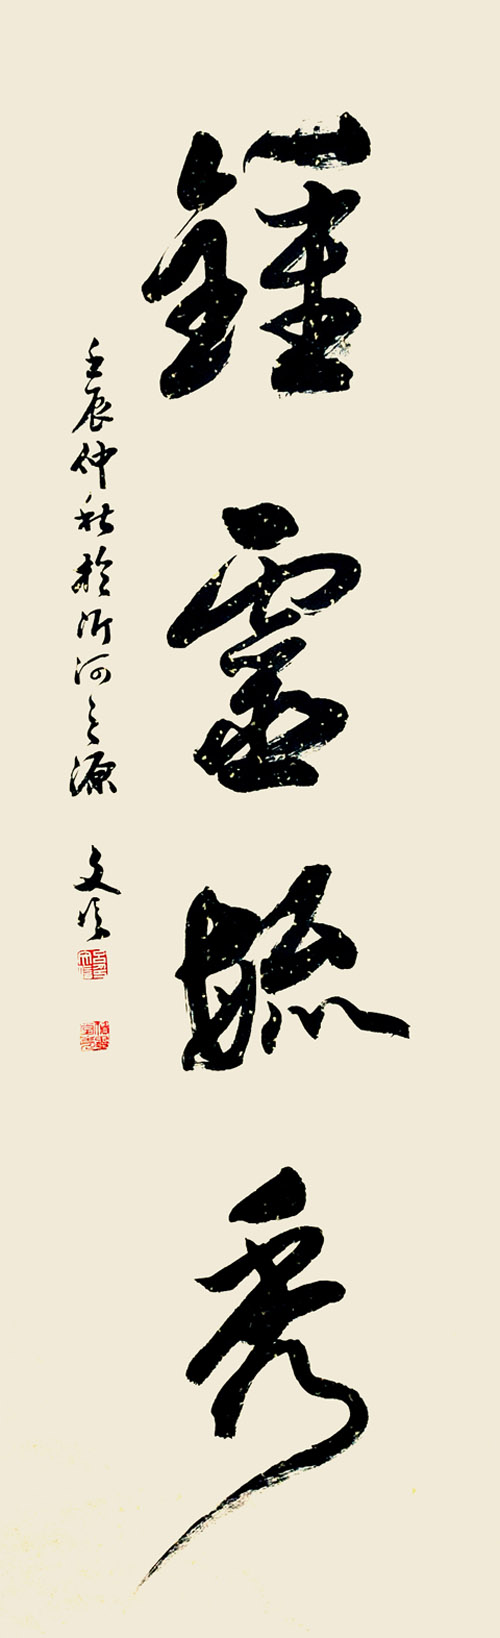 鍾靈毓秀
壬辰仲秋於沂河之源 文